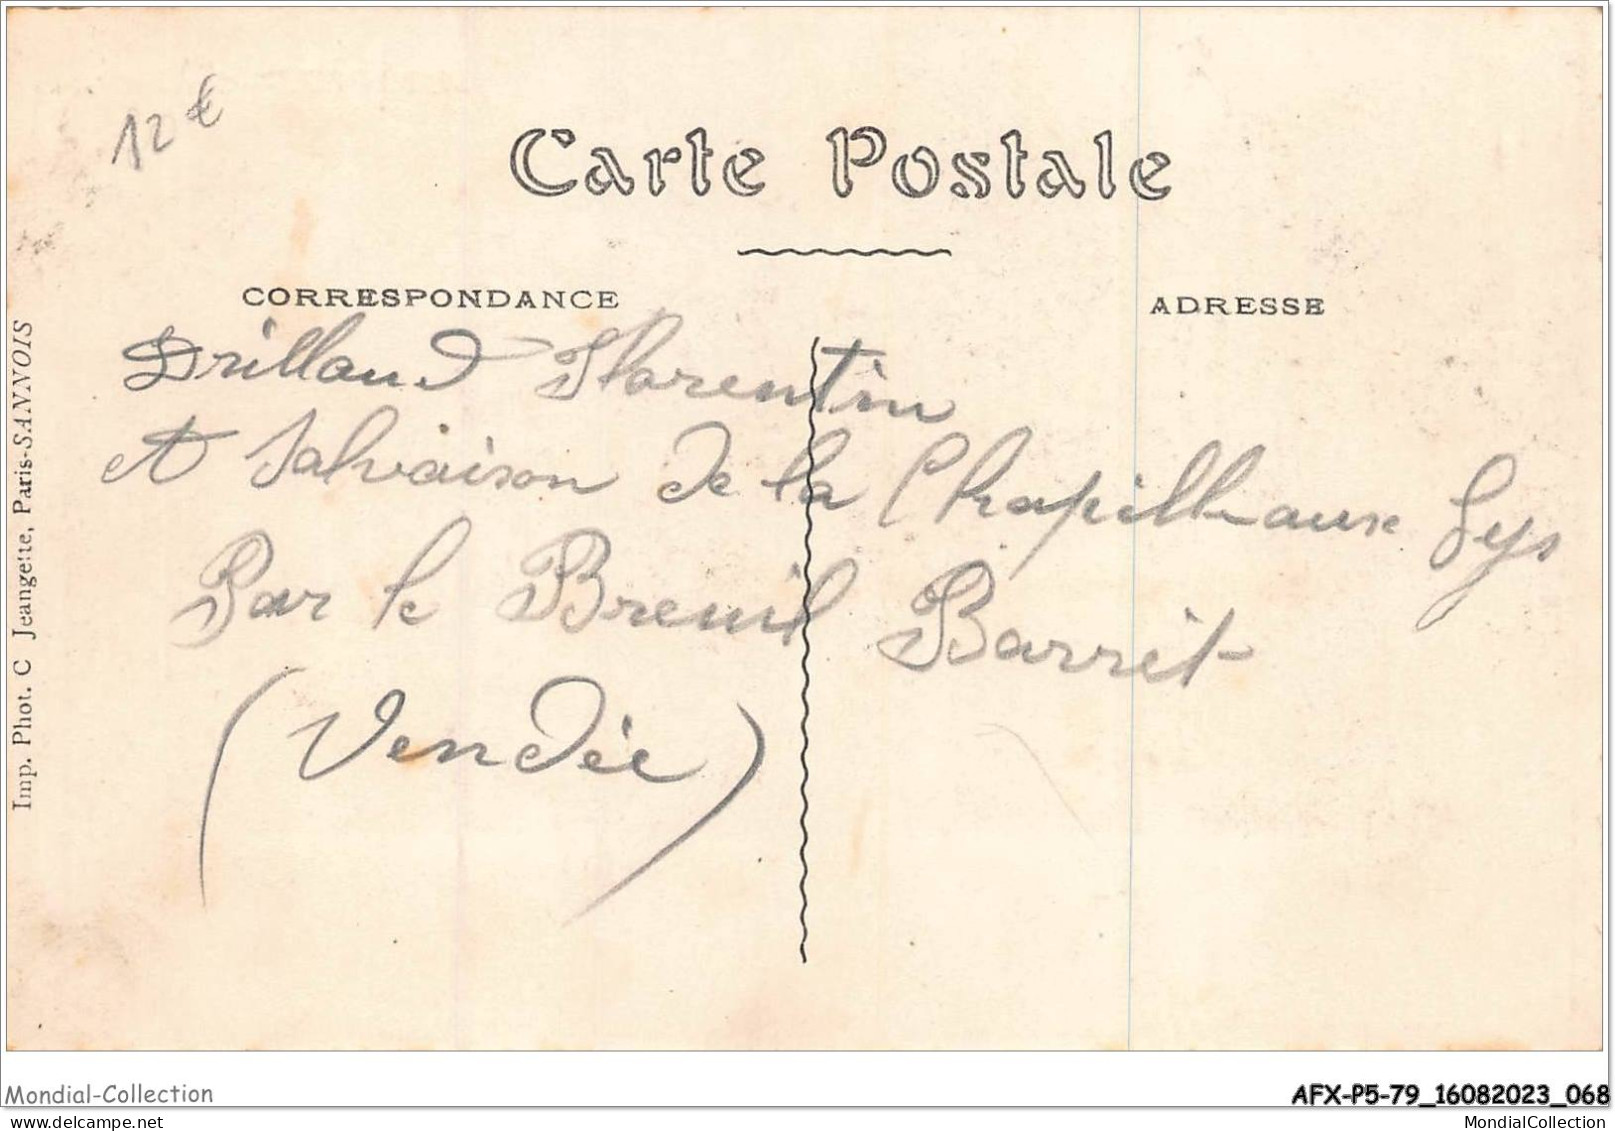 12 €
Carte Postale
CORRESPONDANCE
ADRESSE
Drillaud Florentin
et Salvaison de la Chapelleaux Lys
Par le Breuil Barret
(Vendée)
Imp. Phot. C Jeangette, Paris-SANNOIS
Mondial-Collection
AFX-P5-79_16082023_068
MondialCollection.com
MondialCollection